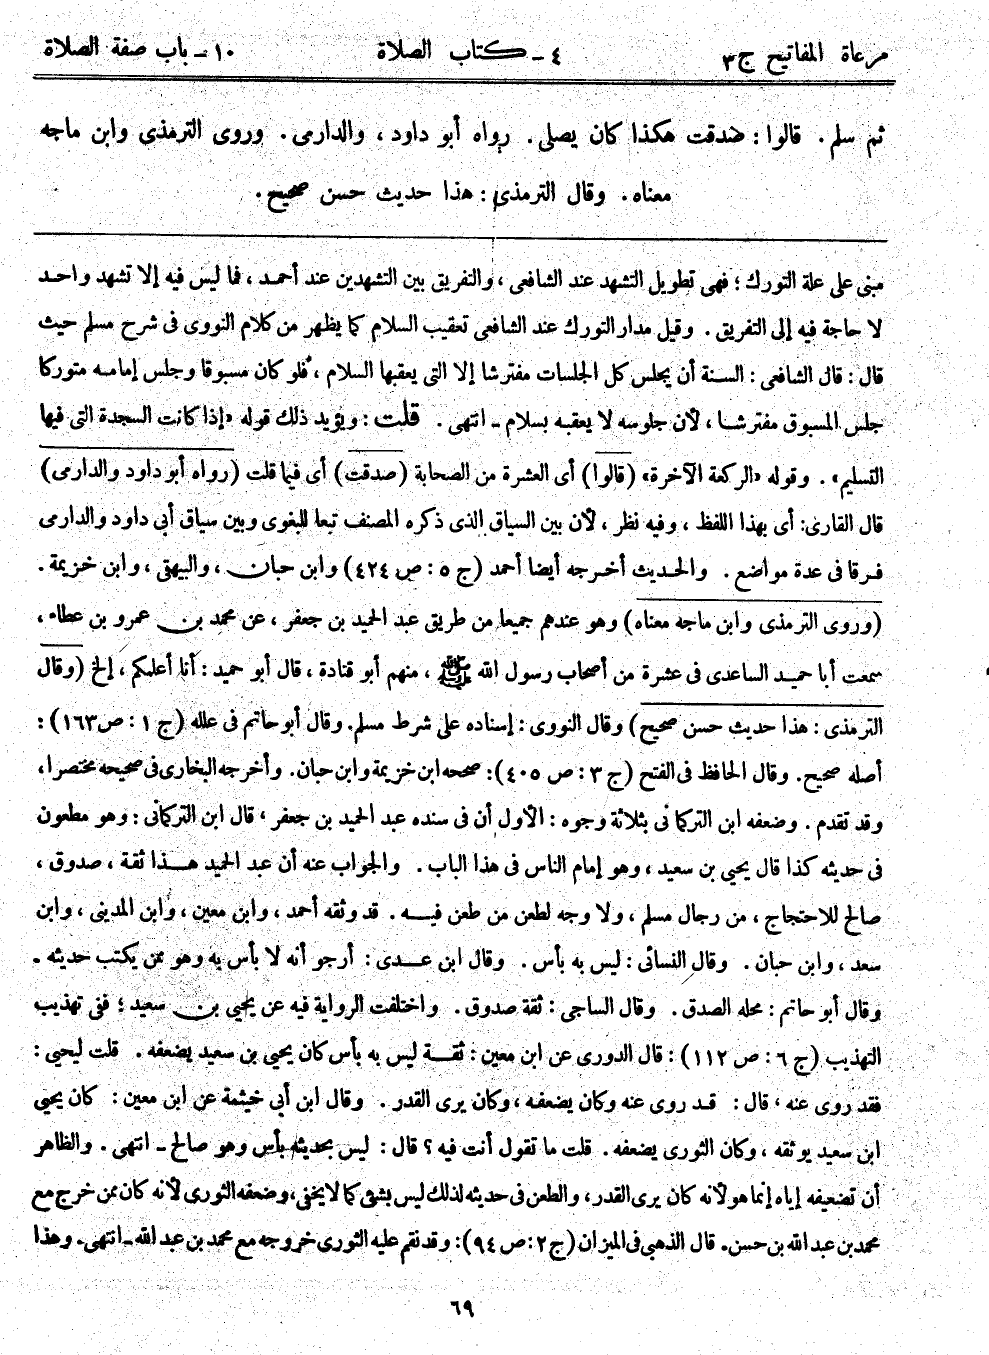 مرعاة المفاتيح ج ٣
٤ ـ كتاب الصلاة
١٠ ـ باب صفة الصلاة
ثم سلم. قالوا: صدقت هكذا كان يصلى. رواه أبو داود، والدارمى. وروى الترمذى وابن ماجه
معناه. وقال الترمذى: هذا حديث حسن صحيح.
مبنى على علة التورك؛ فهى تطويل التشهد عند الشافعى، والتفريق بين التشهدين عند أحمد، فما ليس فيه إلا تشهد واحد
لا حاجة فيه إلى التفريق. وقيل مدار التورك عند الشافعى تعقيب السلام كما يظهر من كلام النووى فى شرح مسلم حيث
قال: قال الشافعى: السنة أن يجلس كل الجلسات مفترشا إلا التى يعقبها السلام، فلو كان مسبوقا وجلس إمامه متوركا
جلس المسبوق مفترشا، لأن جلوسه لا يعقبه بسلام ـ انتهى. قلت: ويؤيد ذلك قوله «إذا كانت السجدة التى فيها
التسليم». وقوله «الركعة الآخرة» (قالوا) أى العشرة من الصحابة (صدقت) أى فيما قلت (رواه أبو داود والدارمى)
قال القارى: أى بهذا اللفظ، وفيه نظر، لأن بين السياق الذى ذكره المصنف تبعا للبغوى وبين سياق أبى داود والدارمى
فرقا فى عدة مواضع. والحديث أخرجه أيضا أحمد (ج ٥: ص ٤٢٤) وابن حبان، والبيهقى، وابن خزيمة.
(وروى الترمذى وابن ماجه معناه) وهو عندهم جميعا من طريق عبد الحميد بن جعفر، عن محمد بن عمرو بن عطاء،
سمعت أبا حميد الساعدى فى عشرة من أصحاب رسول الله ﷺ، منهم أبو قتادة، قال أبو حميد: أنا أعلمكم، إلخ (وقال
الترمذى: هذا حديث حسن صحيح) وقال النووى: إسناده على شرط مسلم. وقال أبو حاتم فى علله (ج ١: ص ١٦٣):
أصله صحيح. وقال الحافظ فى الفتح (ج ٣: ص ٤٠٥): صححه ابن خزيمة وابن حبان. وأخرجه البخارى فى صحيحه مختصرا،
وقد تقدم. وضعفه ابن التركمانى بثلاثة وجوه: الأول أن فى سنده عبد الحميد بن جعفر، قال ابن التركمانى: وهو مطعون
فى حديثه كذا قال يحيى بن سعيد، وهو إمام الناس فى هذا الباب. والجواب عنه أن عبد الحميد هذا ثقة، صدوق،
صالح للاحتجاج، من رجال مسلم، ولا وجه لطعن من طعن فيه. قد وثقه أحمد، وابن معين، وابن المدينى، وابن
سعد، وابن حبان. وقال النسائى: ليس به بأس. وقال ابن عدى: أرجو أنه لا بأس به وهو ممن يكتب حديثه ـ
وقال أبو حاتم: محله الصدق. وقال الساجى: ثقة صدوق. واختلفت الرواية فيه عن يحيى بن سعيد؛ ففى تهذيب
التهذيب (ج ٦: ص ١١٢): قال الدورى عن ابن معين: ثقة ليس به بأس كان يحيى بن سعيد يضعفه. قلت ليحيى:
فقد روى عنه، قال: قد روى عنه وكان يضعفه، وكان يرى القدر. وقال ابن أبى خيثمة عن ابن معين: كان يحيى
ابن سعيد يوثقه، وكان الثورى يضعفه. قلت ما تقول أنت فيه؟ قال: ليس بحديثه بأس وهو صالح ـ انتهى. والظاهر
أن تضعيفه إياه إنما هو لأنه كان يرى القدر، والطعن فى حديثه لذلك ليس بشئ كما لا يخفى، وضعفه الثورى لأنه كان ممن خرج مع
محمد بن عبد الله بن حسن. قال الذهبى فى الميزان (ج ٢: ص ٩٤): وقد نقم عليه الثورى خروجه مع محمد بن عبد الله ـ انتهى. وهذا
٦٩